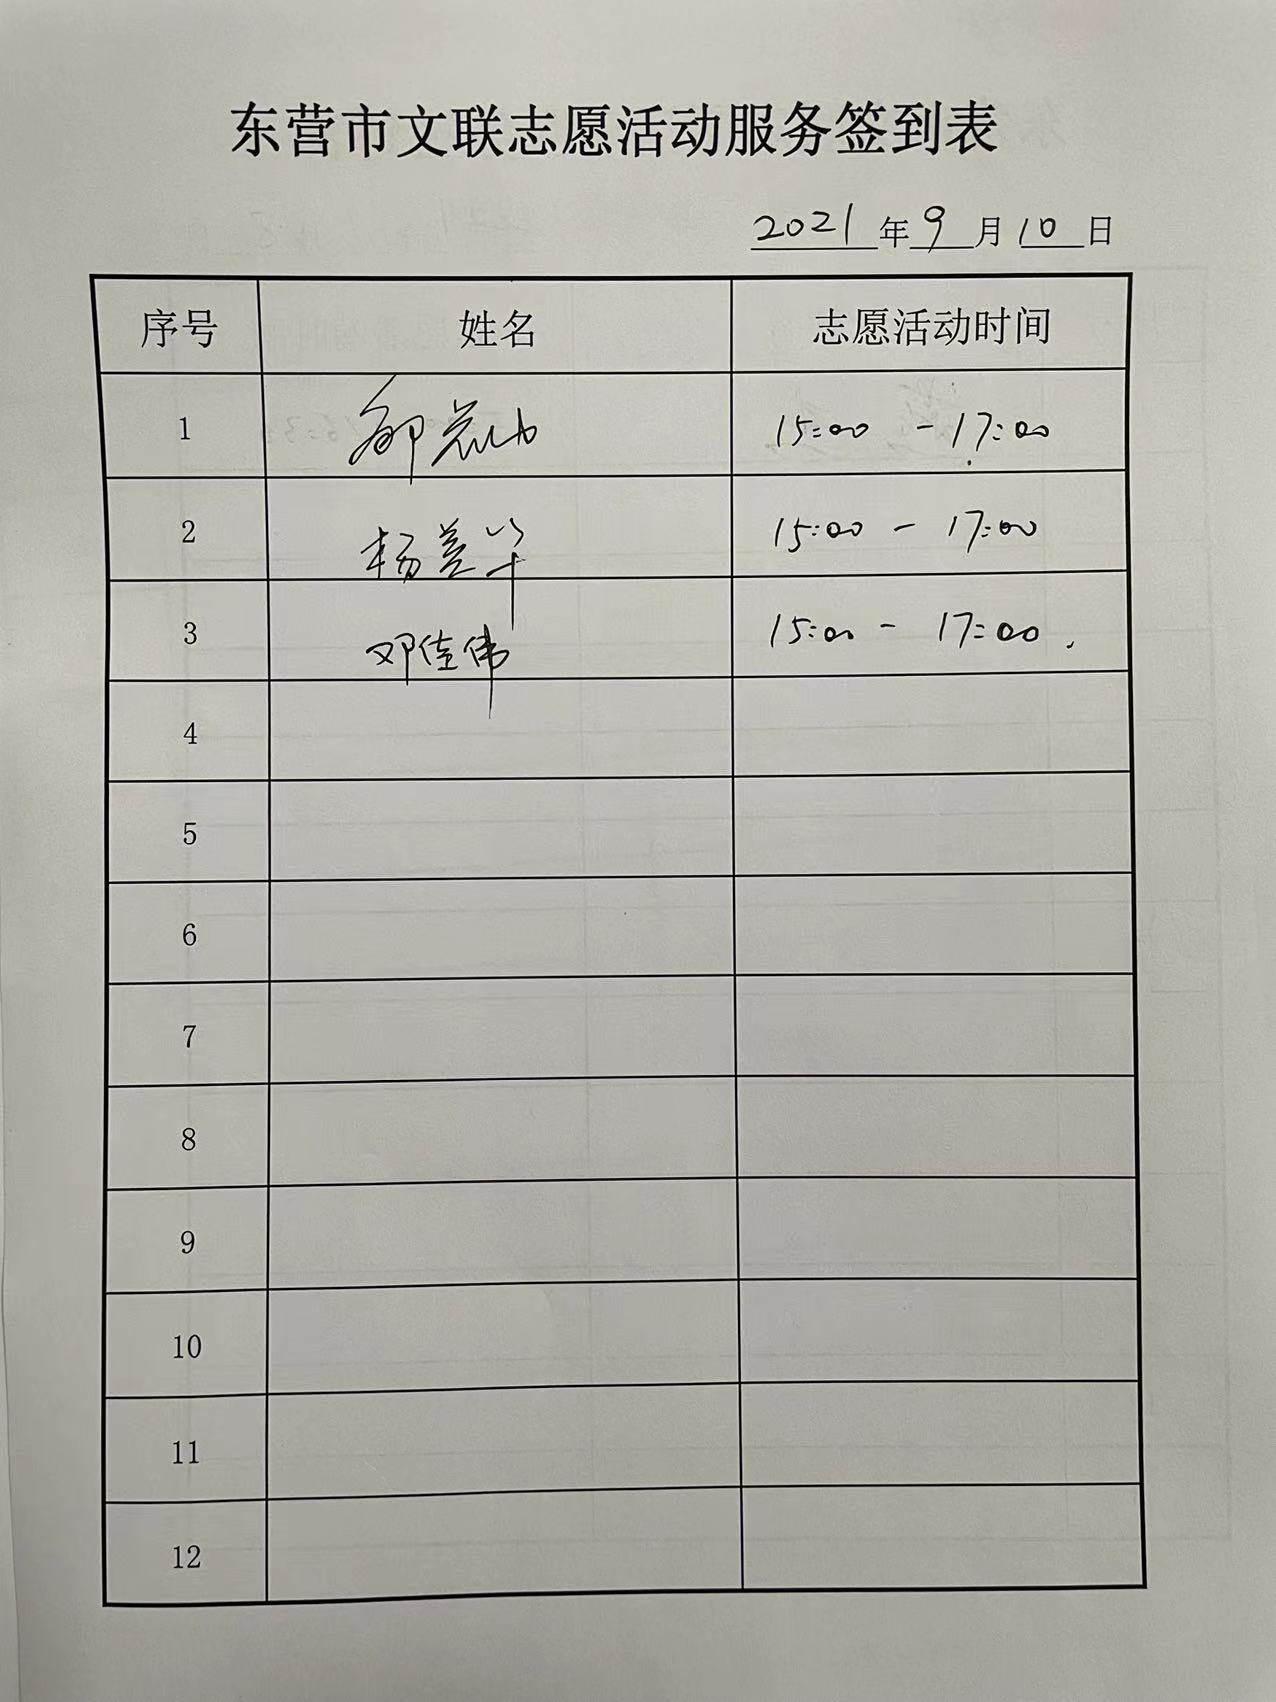 东营市文联志愿活动服务签到表
2021年9月10日
序号 姓名 志愿活动时间
1 15:00 - 17:00
2 杨美华 15:00 - 17:00
3 邓佳伟 15:00 - 17:00
4
5
6
7
8
9
10
11
12